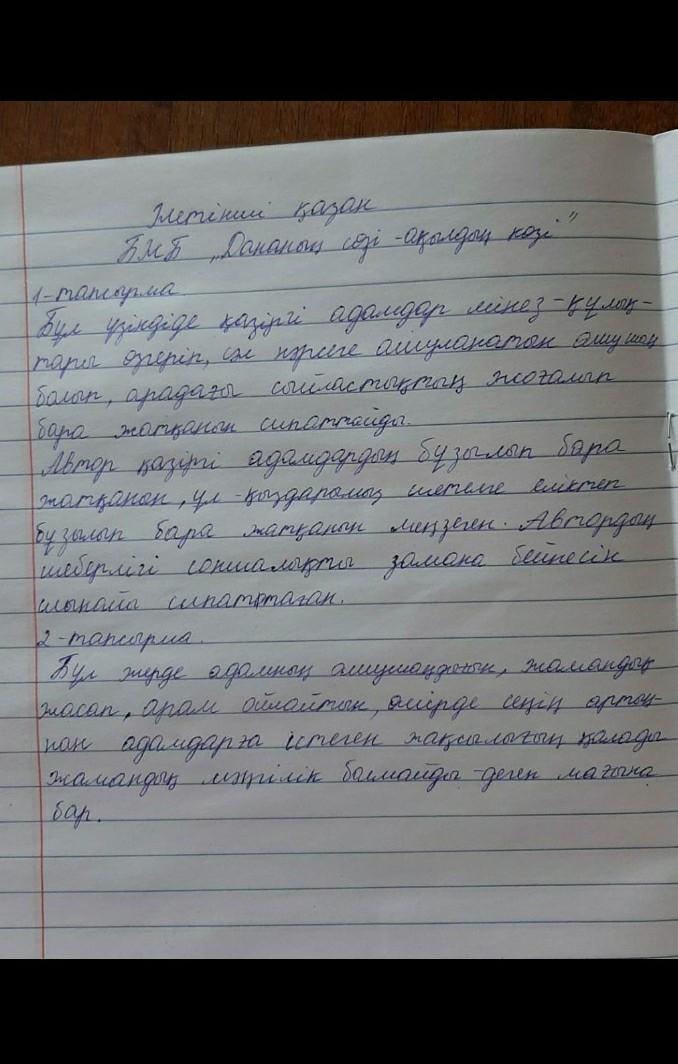 Жетінші қазан
БЖБ „Дананың сөзі - ақылдың көзі"
1-тапсырма.
Бұл үзіндіде қазіргі адамдар мінез-құлық-
тары өзгеріп, сәл нәрсеге ашуланатын ашушаң
болып, арадағы сыйластықтың жоғалып
бара жатқанын сипаттайды.
Автор қазіргі адамдардың бұзылып бара
жатқанын, ұл-қыздарымыз шетелге еліктеп
бұзылып бара жатқанын меңзеген. Автордың
шеберлігі соншалықты замана бейнесін
шынайы сипаттаған.
2-тапсырма.
Бұл жерде адамның ашушаңдығын, жамандық
жасап, арам ойлайтын, өмірде сенің артың-
нан адамдарға істеген жақсылығың қалады
жамандық мәңгілік болмайды-деген мағына
бар.